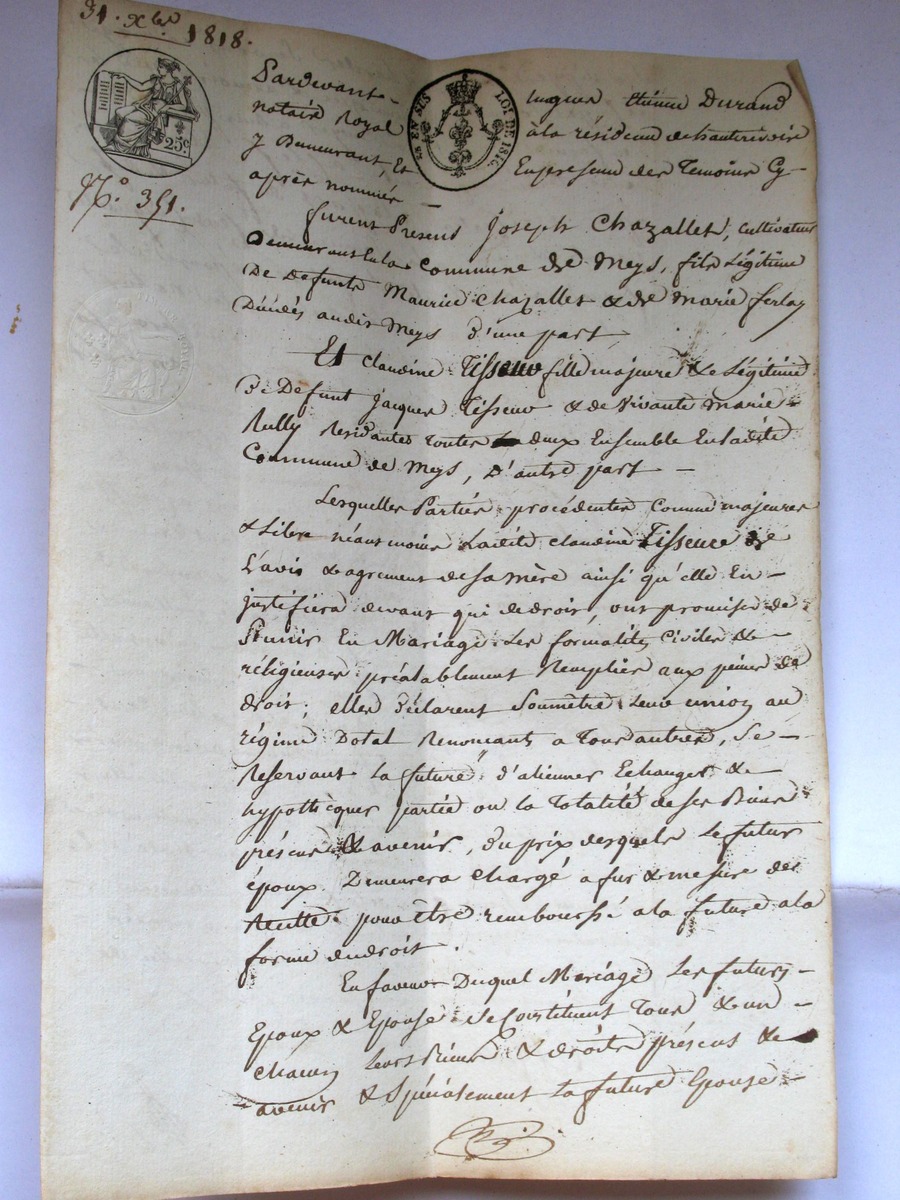 31. Xbre 1818.
25c
28 EN SUS LOI DE 1816
N°. 351.
Pardevant hugues étienne Durand
notaire Royal à la résidence de hauterivoire
y Demeurant, Et En presence des Temoins Cy-
après nommés —
furent Présens Joseph Chazallet, cultivateur
Demeurant En la Commune de Meys, fils Légitime
De Defunts Maurice Chazallet & de Marie ferlay
Décédés audit Meys d'une part,
Et Claudine Tisseur fille majeure & Légitime
De Defunt Jacques Tisseur & de Vivante Marie
Rully Residantes Toutes deux Ensemble En ladite
Commune de Meys, D'autre part —
Lesquelles Parties procédentes Comme majeures
& Libres néanmoins Ladite Claudine Tisseur de
L'avis & agrement de sa mère ainsi qu'elle En
justifiera devant qui de droit, ont promis de
S'unir En Mariage Les formalités Civiles &
réligieuses préalablement Remplies aux peines de
droit; elles Déclarent Soumetre Leur union au
régime Dotal Renonçants a Tous autres, Se
Reservant La future d'aliener Echanger &
hypothéquer partie ou la Totalité de ses Biens
présens & avenir, du prix desquels Le futur
époux Demeurera Chargé a fur & mesure des
Recette pour être remboursé a la future a la
forme du droit.
En faveur Duquel Mariage Les futurs
Epoux & Epouse Se Constituent Tous & un
chacun Leurs Biens & droits présens &
avenir & Spécialement La future Epouse